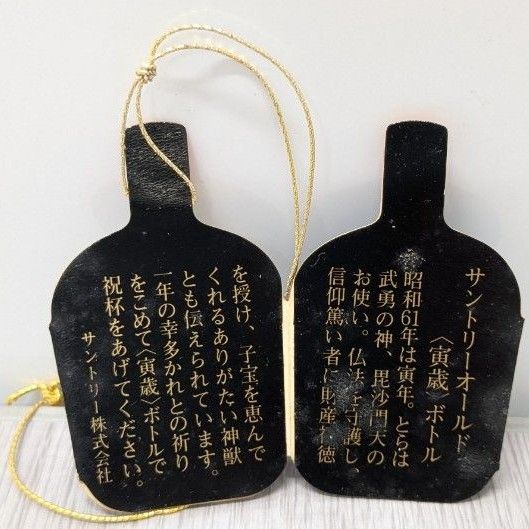 サントリーオールド
〈寅歳〉ボトル
昭和61年は寅年。とらは
武勇の神、毘沙門天の
お使い。仏法を守護し、
信仰篤い者に財産と徳
を授け、子宝を恵んで
くれるありがたい神獣
とも伝えられています。
一年の幸多かれとの祈り
をこめて〈寅歳〉ボトルで
祝杯をあげてください。
サントリー株式会社